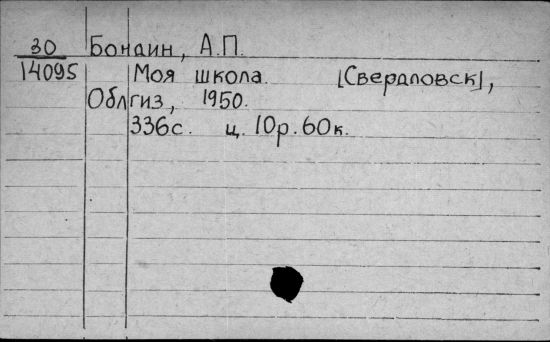 30 Бондин, А.П.
14095 Моя школа. [Свердловск],
Облгиз, 1950.
336с. ц. 10р.60к.